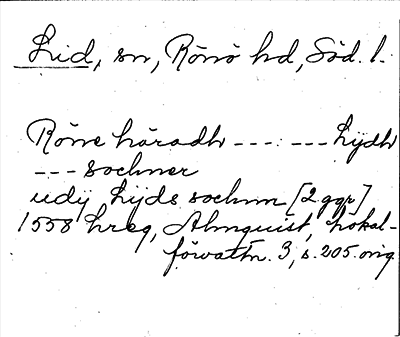 Lid, sn, Rönö hd, Söd. l.
Röne häradh ---- --- Lijdh
--- sochner
udij Lijds sochnn [2 ggr]
1558 hreg, Almquist, Lokal-
förvaltn. 3, s. 205. orig.